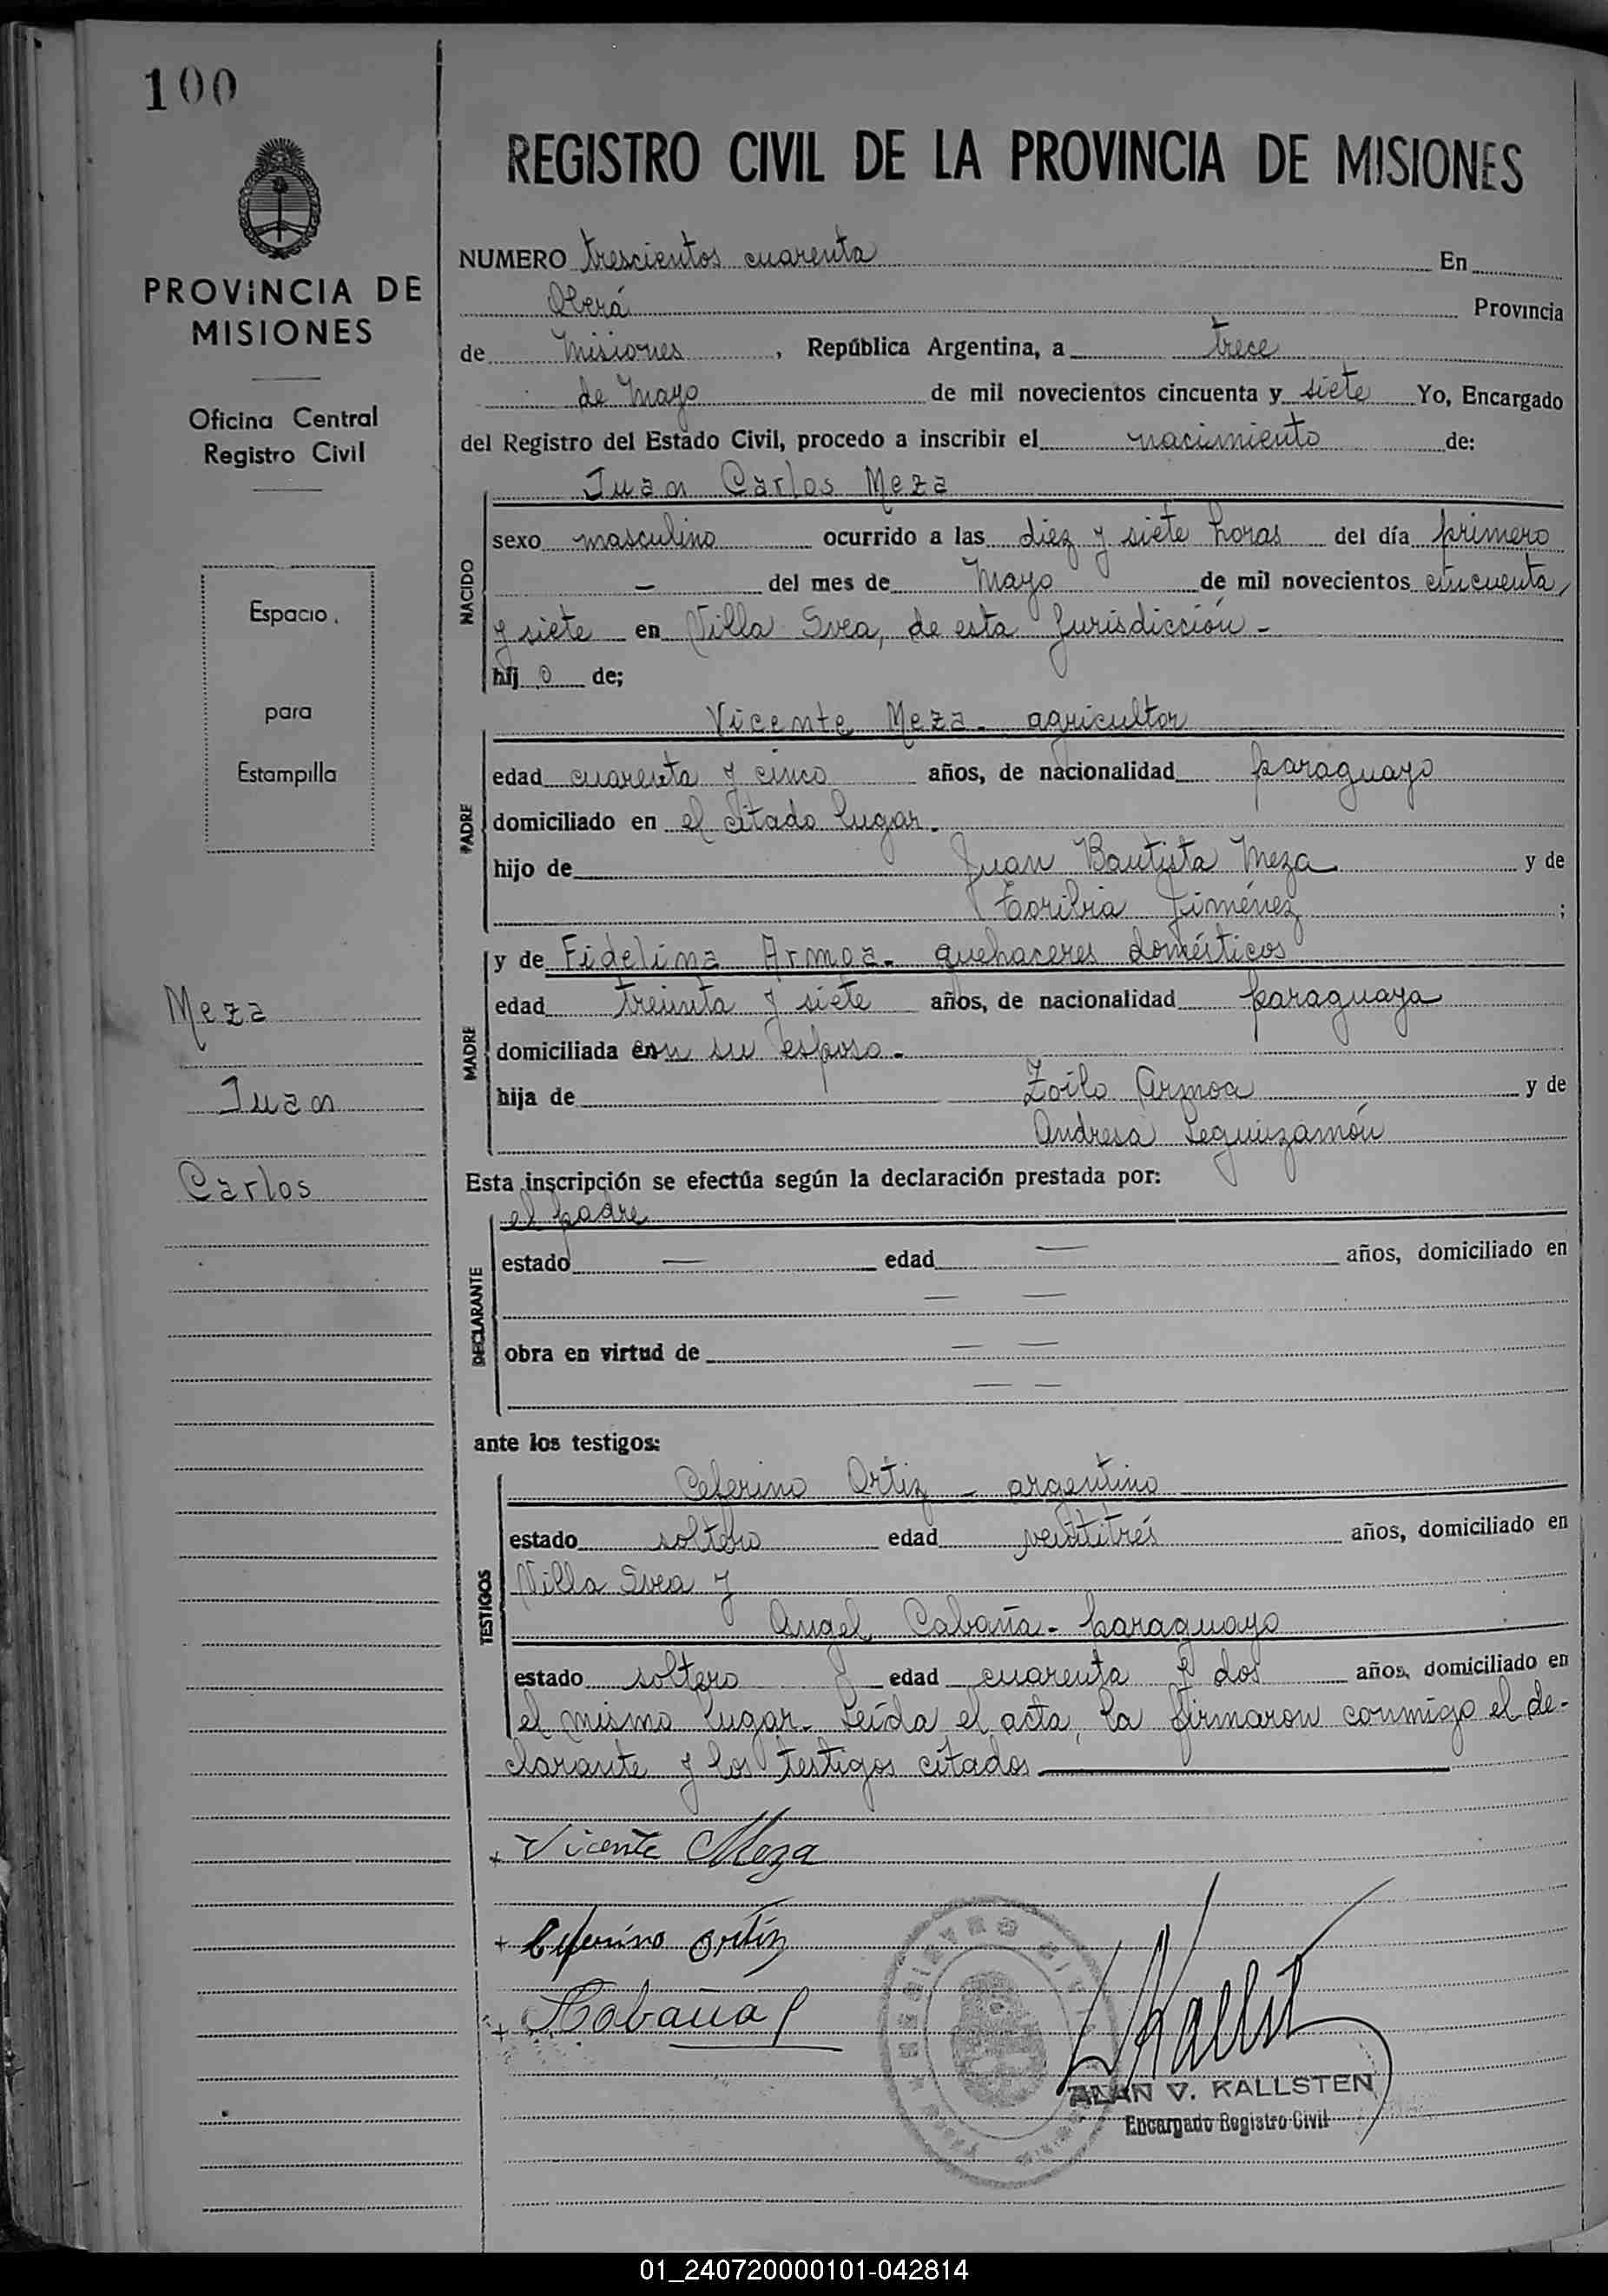 100
REGISTRO CIVIL DE LA PROVINCIA DE MISIONES
PROVINCIA DE
MISIONES
Oficina Central
Registro Civil
Espacio
para
Estampilla
Meza
Juan
Carlos
NUMERO trescientos cuarenta En
Oberá Provincia
de Misiones, República Argentina, a trece
de Mayo de mil novecientos cincuenta y siete Yo, Encargado
del Registro del Estado Civil, procedo a inscribir el nacimiento de:
Juan Carlos Meza
NACIDO
sexo masculino ocurrido a las diez y siete horas del día primero
— del mes de Mayo de mil novecientos cincuenta
y siete en Villa Svea, de esta Jurisdicción -
hij o de;
Vicente Meza - agricultor
PADRE
edad cuarenta y cinco años, de nacionalidad paraguayo
domiciliado en el citado lugar.
hijo de Juan Bautista Meza y de
Toribia Jiménez ;
y de Fidelina Armoa - quehaceres domésticos
MADRE
edad treinta y siete años, de nacionalidad paraguaya
domiciliada con su esposo -
hija de Zoilo Armoa y de
Andresa Leguizamón
Esta inscripción se efectúa según la declaración prestada por:
el padre
DECLARANTE
estado — edad — años, domiciliado en
— —
obra en virtud de — —
— —
ante los testigos:
Ceferino Ortiz - argentino
TESTIGOS
estado soltero edad veintitrés años, domiciliado en
Villa Svea y
Angel Cabaña - paraguayo
estado soltero edad cuarenta y dos años, domiciliado en
el mismo lugar - Leída el acta, la firmaron conmigo el de-
clarante y los testigos citados
+ Vicente Meza
+ Ceferino Ortiz
+ A Cabaña
REGISTRO CIVIL
ALAN V. KALLSTEN
Encargado Registro Civil
01_240720000101-042814